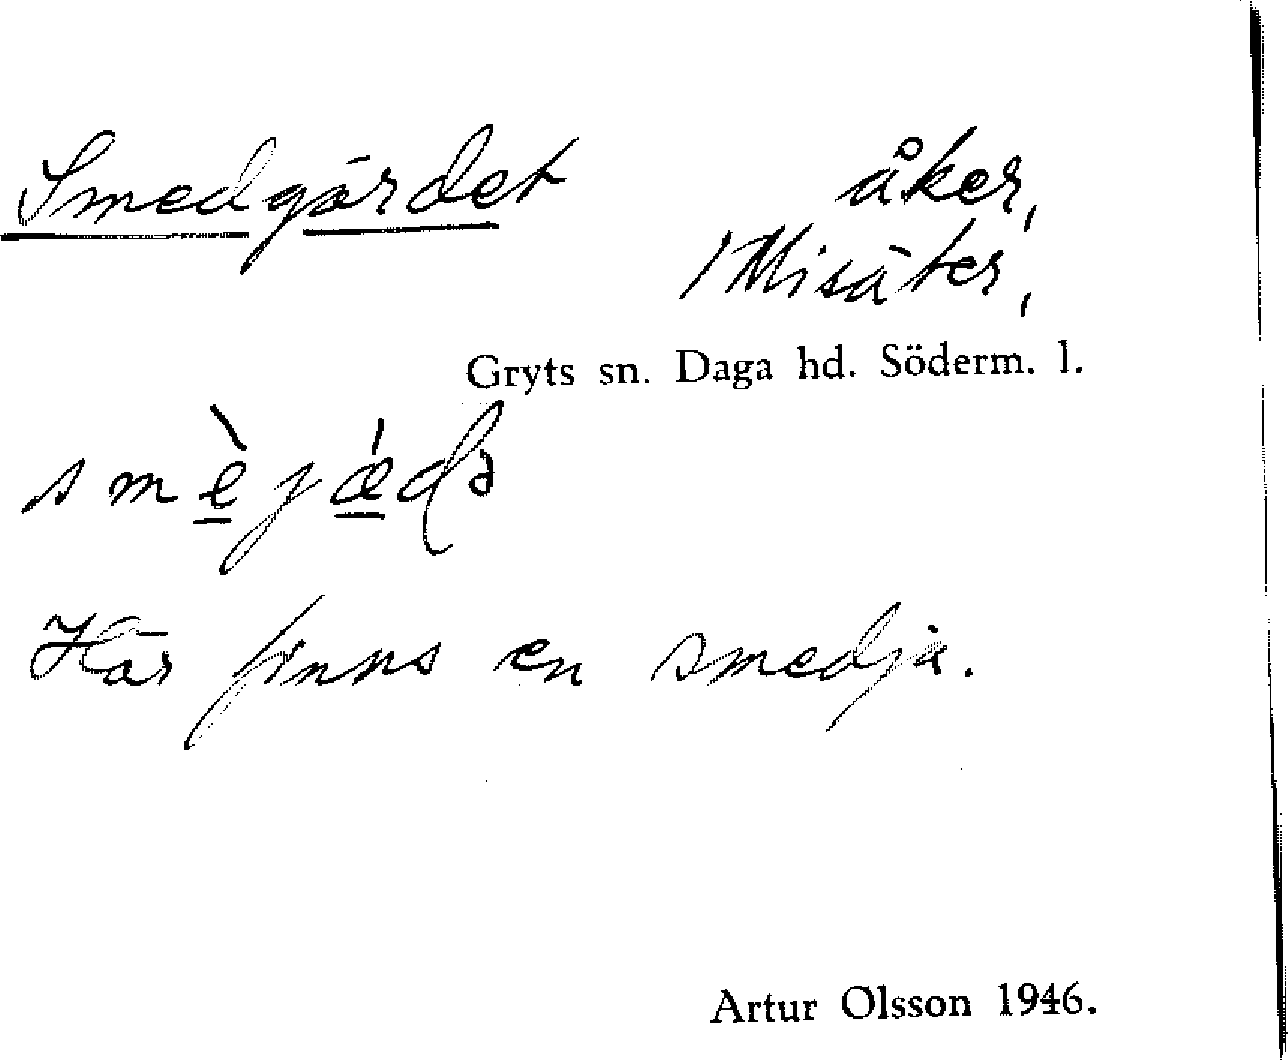 Smedgärdet åker,
1 Misäter,
Gryts sn. Daga hd. Söderm. l.
smè̱jǽ̱ḍə
Här finns en smedja.
Artur Olsson 1946.